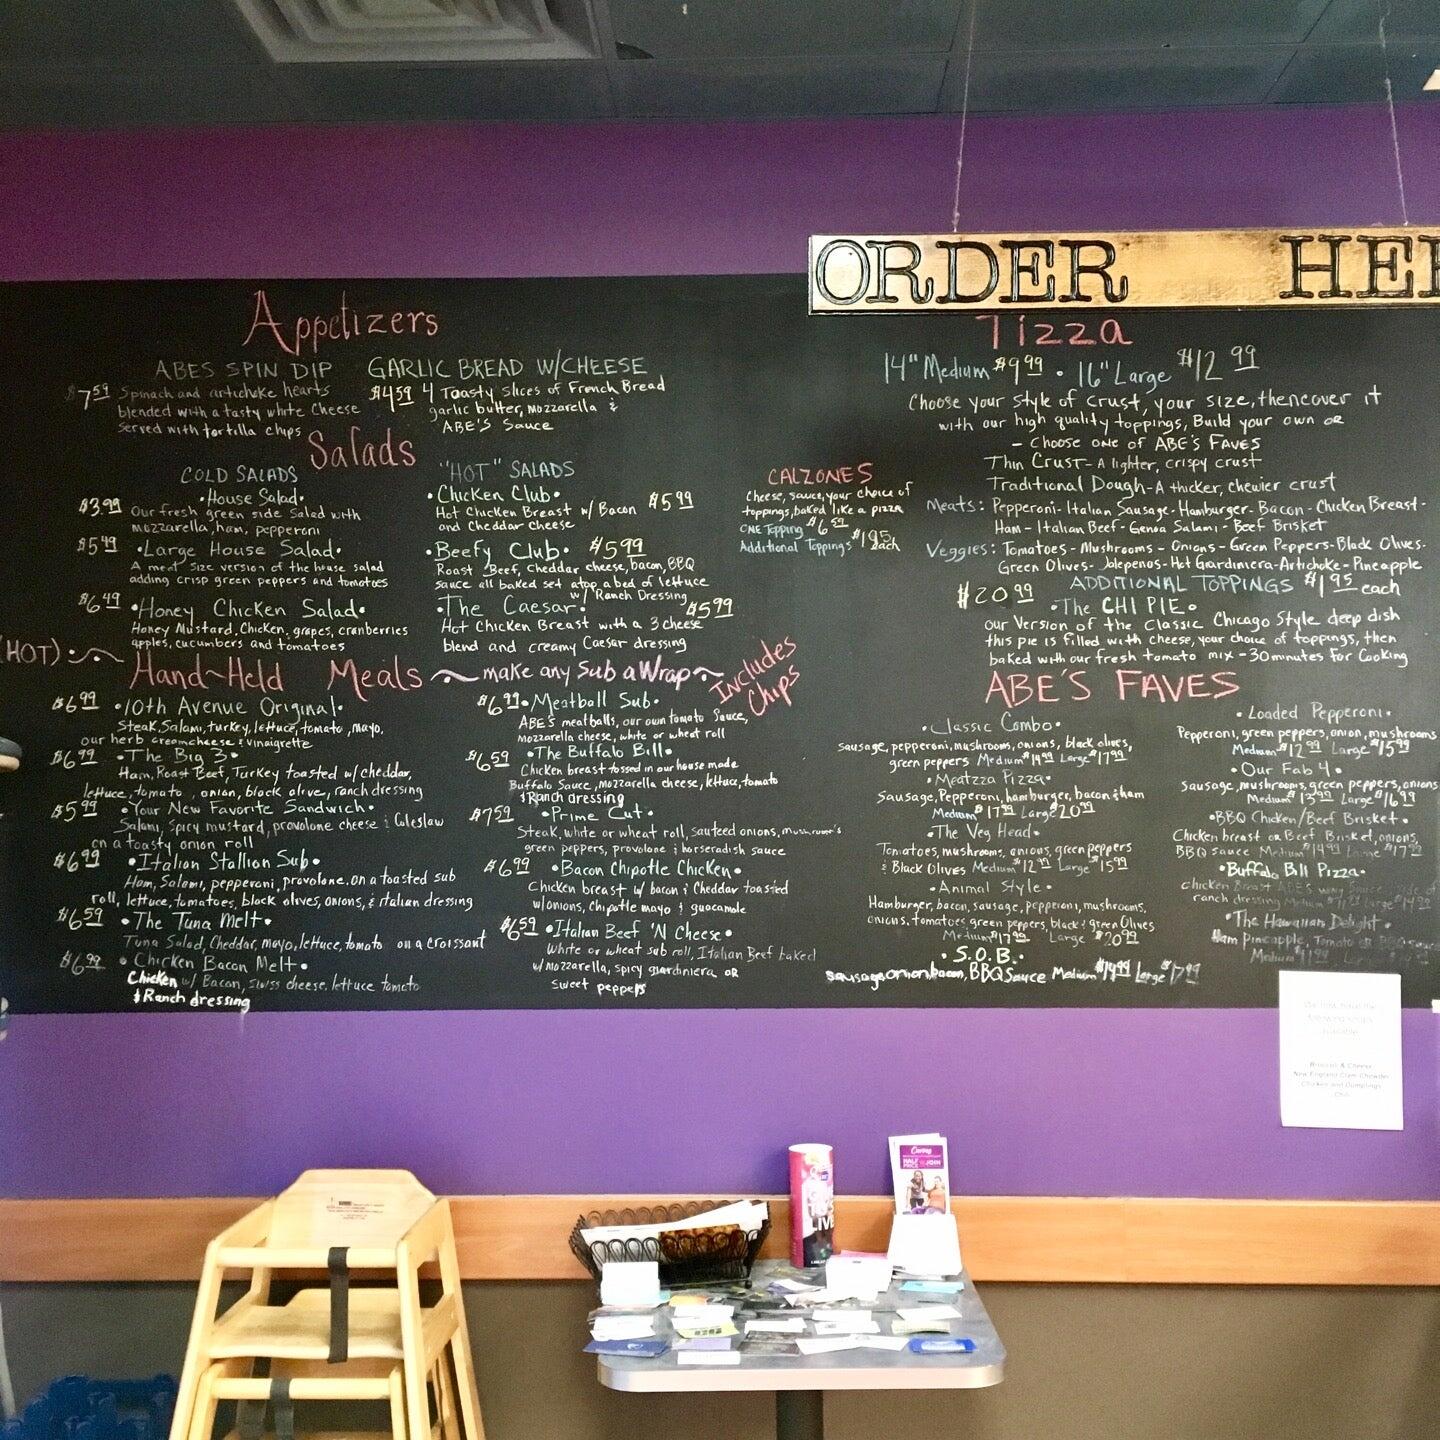 ORDER HE
Appetizers
ABES SPIN DIP
$7.59 Spinach and artichoke hearts
blended with a tasty white cheese
served with tortilla chips
GARLIC BREAD W/CHEESE
$4.59 4 Toasty slices of French Bread
garlic butter, mozzarella &
ABE'S Sauce
Salads
COLD SALADS
•House Salad•
$3.99 Our fresh green side Salad with
mozzarella, ham, pepperoni
$5.49 •Large House Salad•
A meal size version of the house salad
adding crisp green peppers and tomatoes
$6.49 •Honey Chicken Salad•
Honey Mustard, Chicken, grapes, cranberries
apples, cucumbers and tomatoes
"HOT" SALADS
•Chicken Club• $5.99
Hot Chicken Breast w/ Bacon
and Cheddar Cheese
•Beefy Club• $5.99
Roast Beef, Cheddar cheese, bacon, BBQ
sauce all baked set atop a bed of lettuce
w/ Ranch Dressing
•The Caesar• $5.99
Hot Chicken Breast with a 3 cheese
blend and creamy Caesar dressing
CALZONES
Cheese, sauce, your choice of
toppings, baked like a pizza
ONE Topping $6.59
Additional Toppings $1.95 each
(HOT)
Hand-Held Meals
make any Sub a Wrap
Includes
Chips
$6.99 •10th Avenue Original•
Steak, Salami, turkey, lettuce, tomato, mayo,
our herb creamcheese & vinaigrette
$6.99 •The Big 3•
Ham, Roast Beef, Turkey toasted w/ cheddar,
lettuce, tomato, onion, black olive, ranch dressing
$5.99 •Your New Favorite Sandwich•
Salami, spicy mustard, provolone cheese & Coleslaw
on a toasty onion roll
$6.99 •Italian Stallion Sub•
Ham, Salami, pepperoni, provolone, on a toasted sub
roll, lettuce, tomatoes, black olives, onions, & italian dressing
$6.59 •The Tuna Melt•
Tuna Salad, Cheddar, mayo, lettuce, tomato on a croissant
$6.99 •Chicken Bacon Melt•
Chicken w/ Bacon, swiss cheese, lettuce tomato
& Ranch dressing
$6.99 •Meatball Sub•
ABE'S meatballs, our own tomato Sauce,
mozzarella cheese, white or wheat roll
$6.59 •The Buffalo Bill•
Chicken breast tossed in our house made
Buffalo Sauce, mozzarella cheese, lettuce, tomato
& Ranch dressing
$7.59 •Prime Cut•
Steak, white or wheat roll, sauteed onions, mushrooms
green peppers, provolone & horseradish sauce
$6.99 •Bacon Chipotle Chicken•
Chicken breast w/ bacon & Cheddar toasted
w/onions, Chipotle mayo & guacamole
$6.59 •Italian Beef 'N Cheese•
White or wheat sub roll, Italian Beef baked
w/ mozzarella, spicy giardiniera OR
sweet peppers
Pizza
14" Medium $9.99 • 16" Large $12.99
Choose your style of crust, your size, then cover it
with our high quality toppings, Build your own OR
- Choose one of ABE'S FAVES
Thin Crust- A lighter, crispy crust
Traditional Dough- A thicker, chewier crust
Meats: Pepperoni- Italian Sausage- Hamburger- Bacon- Chicken Breast-
Ham- Italian Beef- Genoa Salami- Beef Brisket
Veggies: Tomatoes- Mushrooms- Onions- Green Peppers- Black Olives-
Green Olives- Jalepenos- Hot Giardiniera- Artichoke- Pineapple
ADDITIONAL TOPPINGS $1.95 each
$20.99 •The CHI PIE•
our Version of the Classic Chicago Style deep dish
this pie is filled with cheese, your choice of toppings, then
baked with our fresh tomato mix - 30 minutes for Cooking
ABE'S FAVES
•Classic Combo•
sausage, pepperoni, mushrooms, onions, black olives,
green peppers Medium $14.99 Large $17.99
•Meatzza Pizza•
Sausage, Pepperoni, hamburger, bacon & ham
Medium $17.99 Large $20.99
•The Veg Head•
Tomatoes, mushrooms, onions, green peppers
& Black Olives Medium $12.99 Large $15.99
•Animal Style•
Hamburger, bacon, sausage, pepperoni, mushrooms,
onions, tomatoes, green peppers, black & green Olives
Medium $17.99 Large $20.99
•S.O.B.•
sausage, onion, bacon, BBQ Sauce Medium $14.99 Large $17.99
•Loaded Pepperoni•
Pepperoni, green peppers, onion, mushrooms
Medium $12.99 Large $15.99
•Our Fab 4•
Sausage, mushrooms, green peppers, onions
Medium $13.99 Large $16.99
•BBQ Chicken/Beef Brisket•
Chicken breast OR Beef Brisket, onions,
BBQ sauce Medium $14.99 Large $17.99
•Buffalo Bill Pizza•
Chicken Breast ABE'S wing Sauce, side of
ranch dressing Medium $11.99 Large $14.99
•The Hawaiian Delight•
Ham Pineapple, Tomato OR BBQ sauce
Medium
We now have the
following soups
available
Broccoli & Cheese
New England Clam Chowder
Chicken and Dumplings
Chili
Curves
HALF
PRICE TO JOIN
LIVE